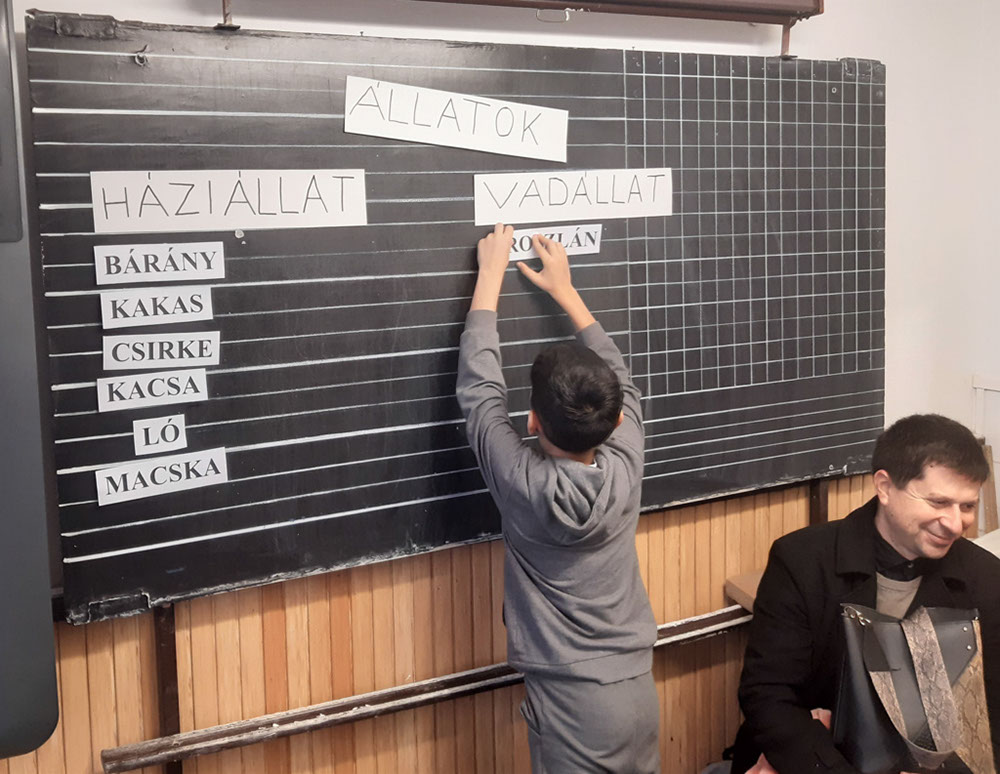 ÁLLATOK
HÁZIÁLLAT
BÁRÁNY
KAKAS
CSIRKE
KACSA
LÓ
MACSKA
VADÁLLAT
OROSZLÁN